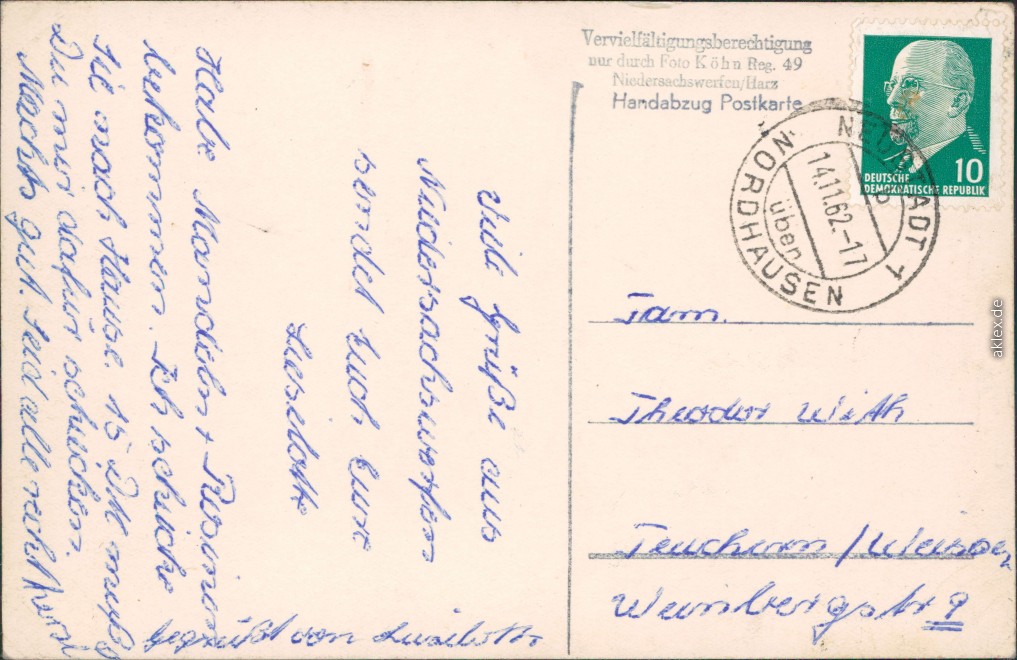 Viele Grüße aus
Niedersachswerfen
sendet Euch Eure
Liselotte
Habe Mandeln + Rosinen
bekommen. Ich schicke
Sie nach Hause. 15 DM mußt
Du mir dafür schicken.
Machts gut. Seid alle recht herzl.
gegrüßt von Liselotte
Vervielfältigungsberechtigung
nur durch Foto Köhn Reg. 49
Niedersachswerfen/Harz
Handabzug Postkarte
DEUTSCHE
DEMOKRATISCHE REPUBLIK
10
NEUSTADT 1
14.11.62-17
über
NORDHAUSEN
b
Fam.
Theodor Wirth
Teuchern / Weißen
Weinbergstr 9
aklex.de